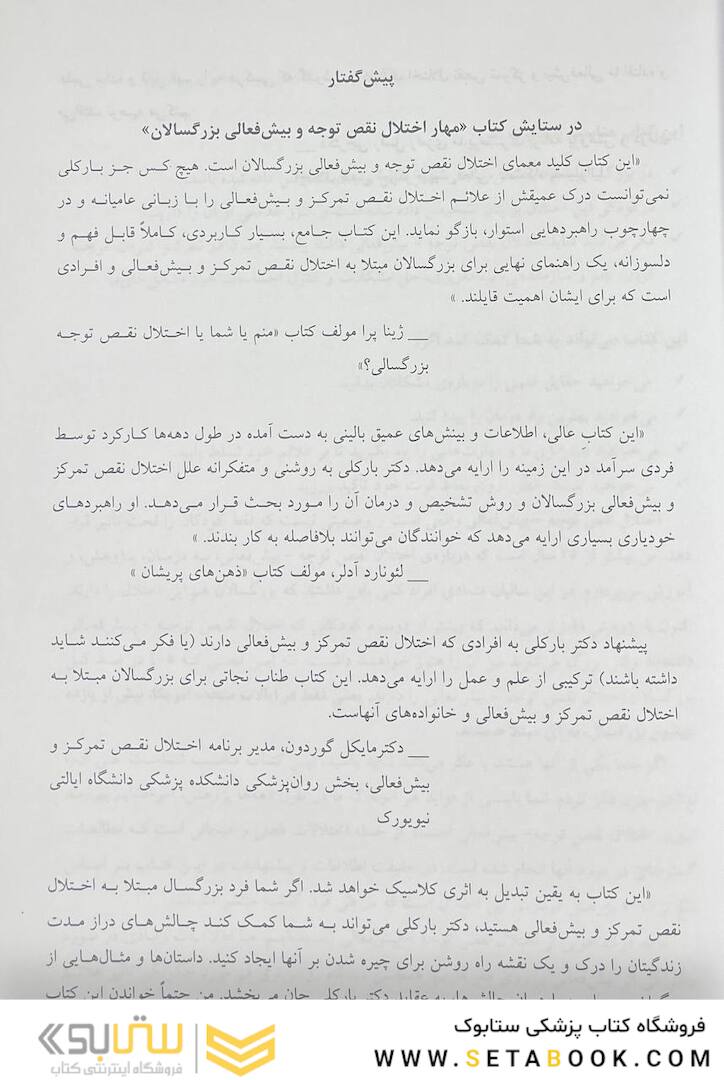 پیش‌گفتار
در ستایش کتاب «مهار اختلال نقص توجه و بیش‌فعالی بزرگسالان»
«این کتاب کلید معمای اختلال نقص توجه و بیش‌فعالی بزرگسالان است. هیچ کس جز بارکلی
نمی‌توانست درک عمیقش از علائم اختلال نقص تمرکز و بیش‌فعالی را با زبانی عامیانه و در
چهارچوب راهبردهایی استوار، بازگو نماید. این کتاب جامع، بسیار کاربردی، کاملاً قابل فهم و
دلسوزانه، یک راهنمای نهایی برای بزرگسالان مبتلا به اختلال نقص تمرکز و بیش‌فعالی و افرادی
است که برای ایشان اهمیت قایلند. »
__ ژینا پرا مولف کتاب «منم یا شما یا اختلال نقص توجه
بزرگسالی؟»
«این کتابِ عالی، اطلاعات و بینش‌های عمیق بالینی به دست آمده در طول دهه‌ها کارکرد توسط
فردی سرآمد در این زمینه را ارایه می‌دهد. دکتر بارکلی به روشنی و متفکرانه علل اختلال نقص تمرکز
و بیش‌فعالی بزرگسالان و روش تشخیص و درمان آن را مورد بحث قرار می‌دهد. او راهبردهای
خودیاری بسیاری ارایه می‌دهد که خوانندگان می‌توانند بلافاصله به کار بندند. »
__ لئونارد آدلر، مولف کتاب «ذهن‌های پریشان »
پیشنهاد دکتر بارکلی به افرادی که اختلال نقص تمرکز و بیش‌فعالی دارند (یا فکر می‌کنند شاید
داشته باشند) ترکیبی از علم و عمل را ارایه می‌دهد. این کتاب طناب نجاتی برای بزرگسالان مبتلا به
اختلال نقص تمرکز و بیش‌فعالی و خانواده‌های آنهاست.
__ دکترمایکل گوردون، مدیر برنامه اختلال نقص تمرکز و
بیش‌فعالی، بخش روان‌پزشکی دانشکده پزشکی دانشگاه ایالتی
نیویورک
«این کتاب به یقین تبدیل به اثری کلاسیک خواهد شد. اگر شما فرد بزرگسال مبتلا به اختلال
نقص تمرکز و بیش‌فعالی هستید، دکتر بارکلی می‌تواند به شما کمک کند چالش‌های دراز مدت
زندگیتان را درک و یک نقشه راه روشن برای چیره شدن بر آنها ایجاد کنید. داستان‌ها و مثال‌هایی از
چالش‌ها، به عقاید دکتر بارکلی جان می‌بخشد. من حتماً خواندن این کتاب
فروشگاه کتاب پزشکی ستابوک
WWW.SETABOOK.COM
ستابوک
فروشگاه اینترنتی کتاب